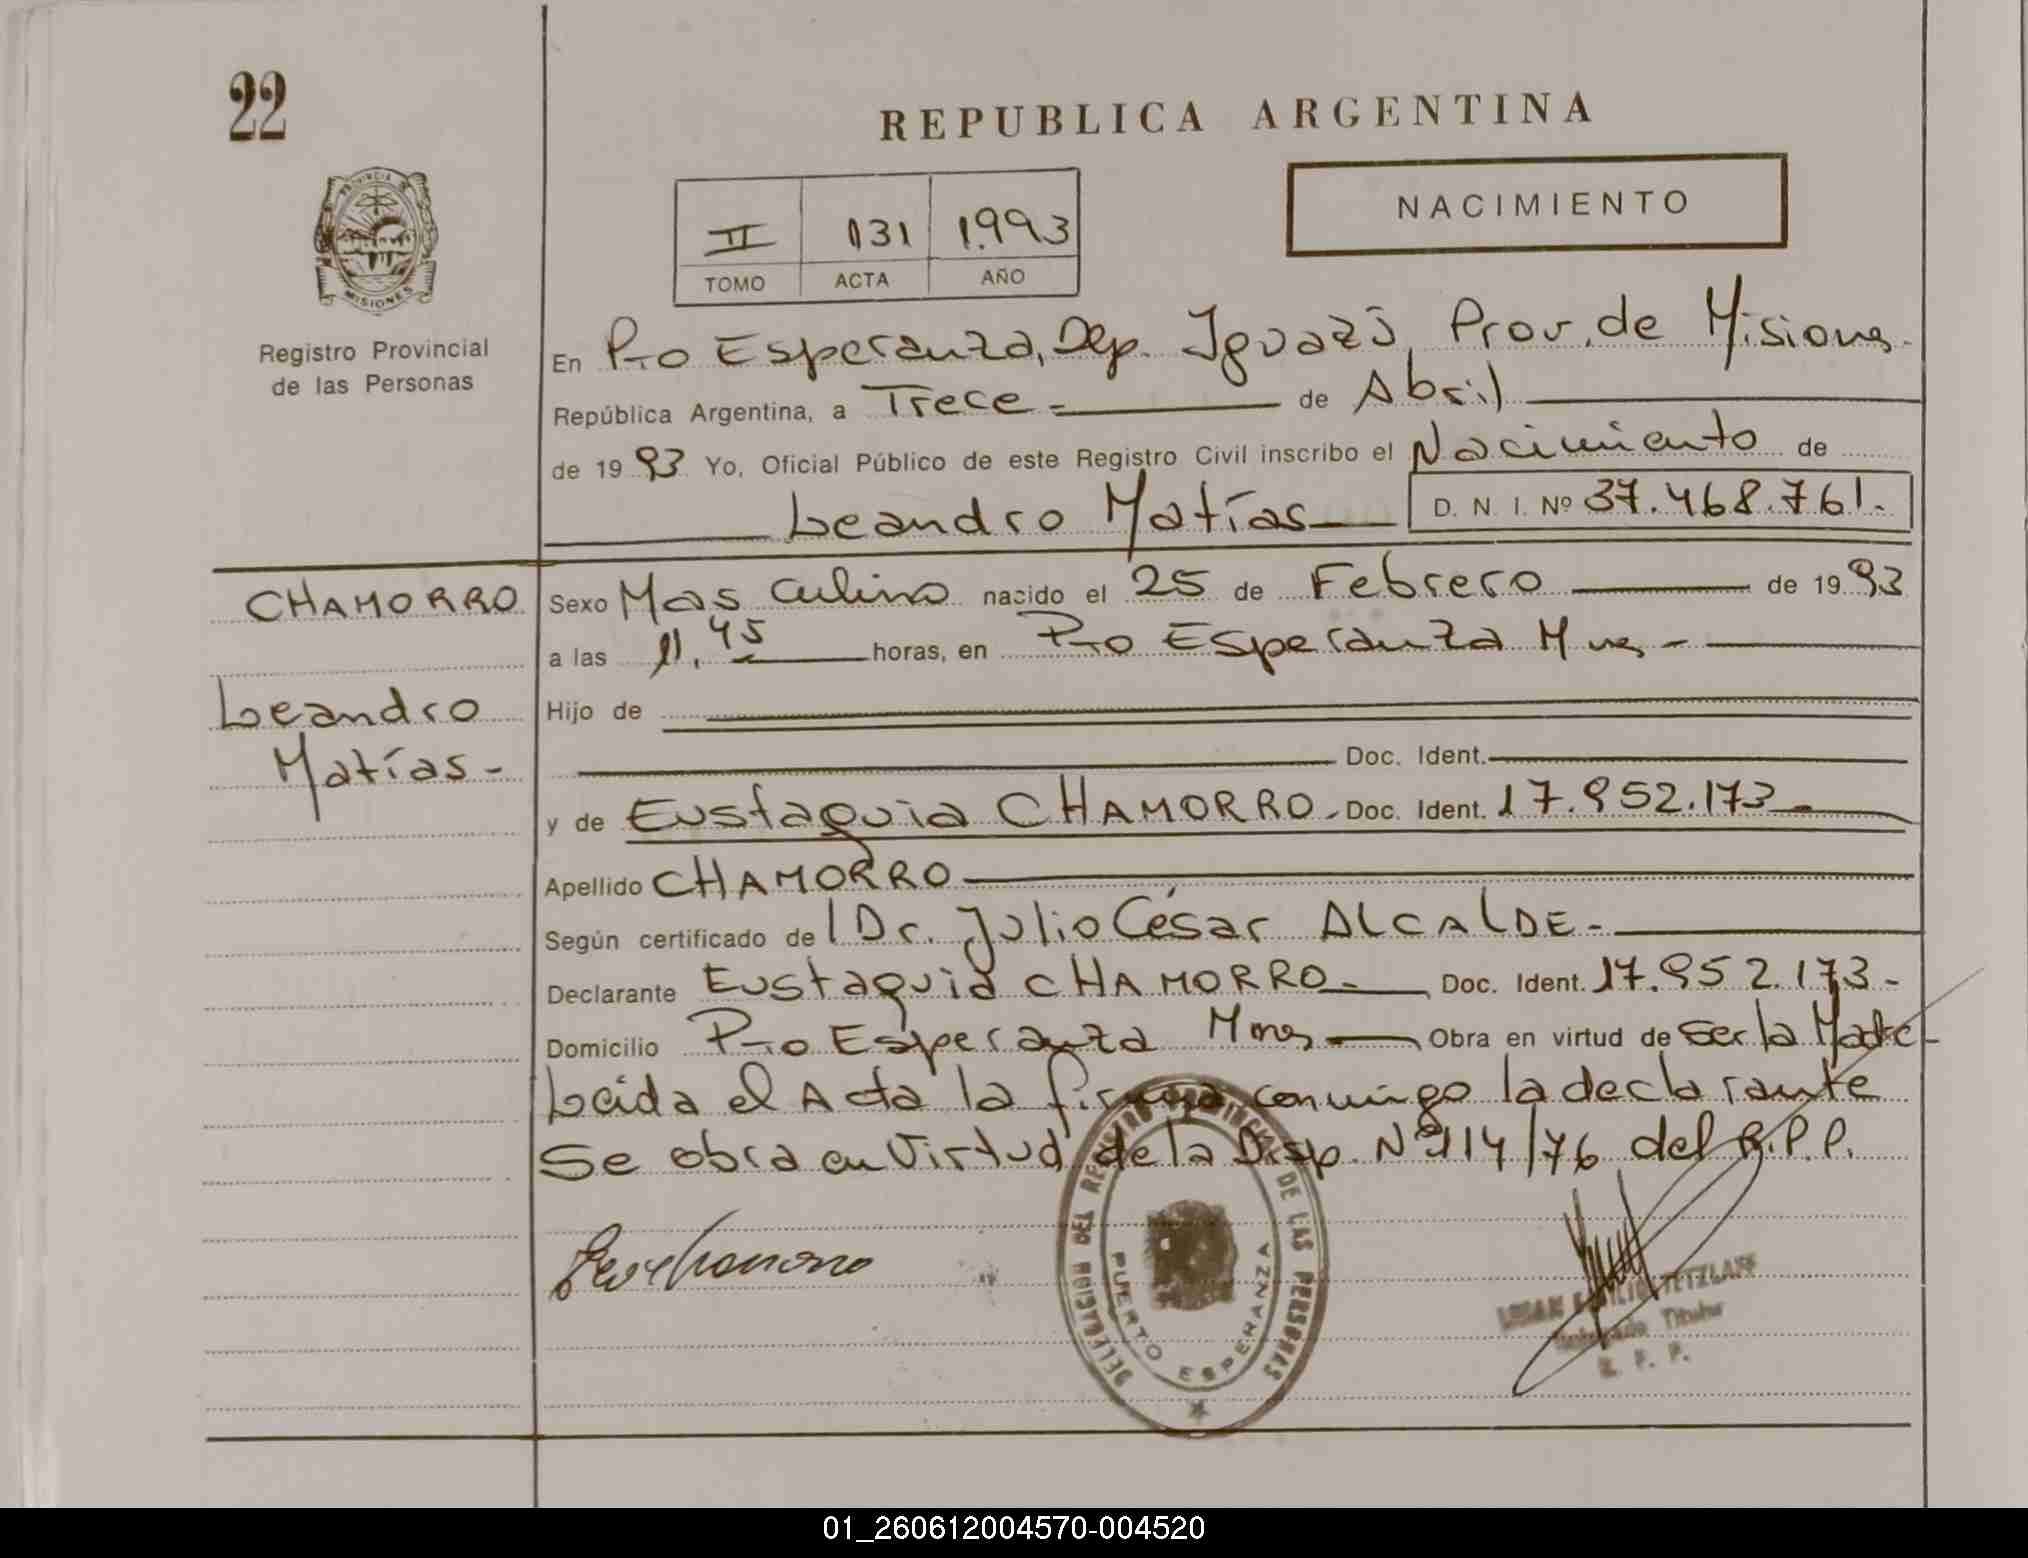 22
REPUBLICA ARGENTINA
PROVINCIA DE
MISIONES
Registro Provincial
de las Personas
II 131 1.993
TOMO ACTA AÑO
NACIMIENTO
En Pto Esperanza, Dep. Iguazú, Prov. de Misiones.
República Argentina, a Trece = de Abril
de 19 93 Yo, Oficial Público de este Registro Civil inscribo el Nacimiento de
Leandro Matías D. N. I. Nº 37.468.761.-
CHAMORRO
Leandro
Matías-
Sexo Masculino nacido el 25 de Febrero de 19 93
a las 11,45 horas, en Pto Esperanza Mnes -
Hijo de
Doc. Ident.
y de Eustaquia CHAMORRO.- Doc. Ident. 17.952.173 -
Apellido CHAMORRO
Según certificado de l Dr. Julio César ALCALDE.-
Declarante Eustaquia CHAMORRO.- Doc. Ident. 17.952.173-
Domicilio Pto Esperanza Mnes Obra en virtud de ser la Madre-
Leida el Acta la firma conmigo la declarante
Se obra en Virtud de la Disp. Nº 114/76 del R.P.P.
DELEGACION DEL REGISTRO PROVINCIAL DE LAS PERSONAS
PUERTO ESPERANZA
TETZLAFF
Titular
R. P. P.
01_260612004570-004520